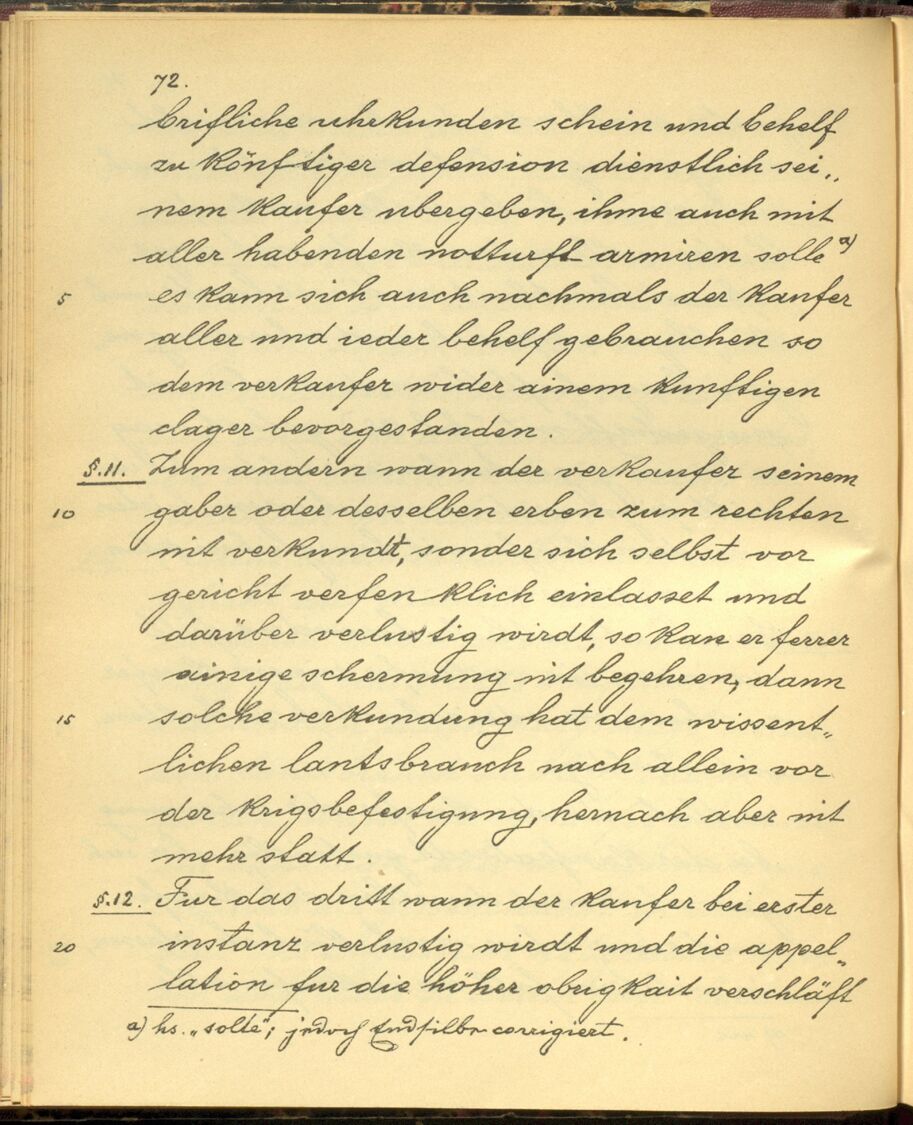 72.
brifliche uhrkunden schein und behelf
zu könftiger defension dienstlich sei„
nem kaufer ubergeben, ihme auch mit
aller habenden notturft armiren solle a)
5 es kann sich auch nachmals der kaufer
aller und ieder behelf gebrauchen so
dem verkaufer wider ainem kunftigen
clager bevorgestanden.
§.11. Zum andern wann der verkaufer seinem
10 gaber oder desselben erben zum rechten
nit verkundt, sonder sich selbst vor
gericht verfenklich einlasset und
darüber verlustig wirdt, so kan er ferrer
ainige schermung nit begehren, dann
15 solche verkundung hat dem wissent„
lichen lantsbrauch nach allein vor
der krigsbefestigung, hernach aber nit
mehr statt.
§.12. Fur das dritt wann der kaufer bei erster
20 instanz verlustig wirdt und die appel„
lation fur die höher obrigkait verschläft
a) hs. „solte“; jedoch Endsilbe corrigiert.